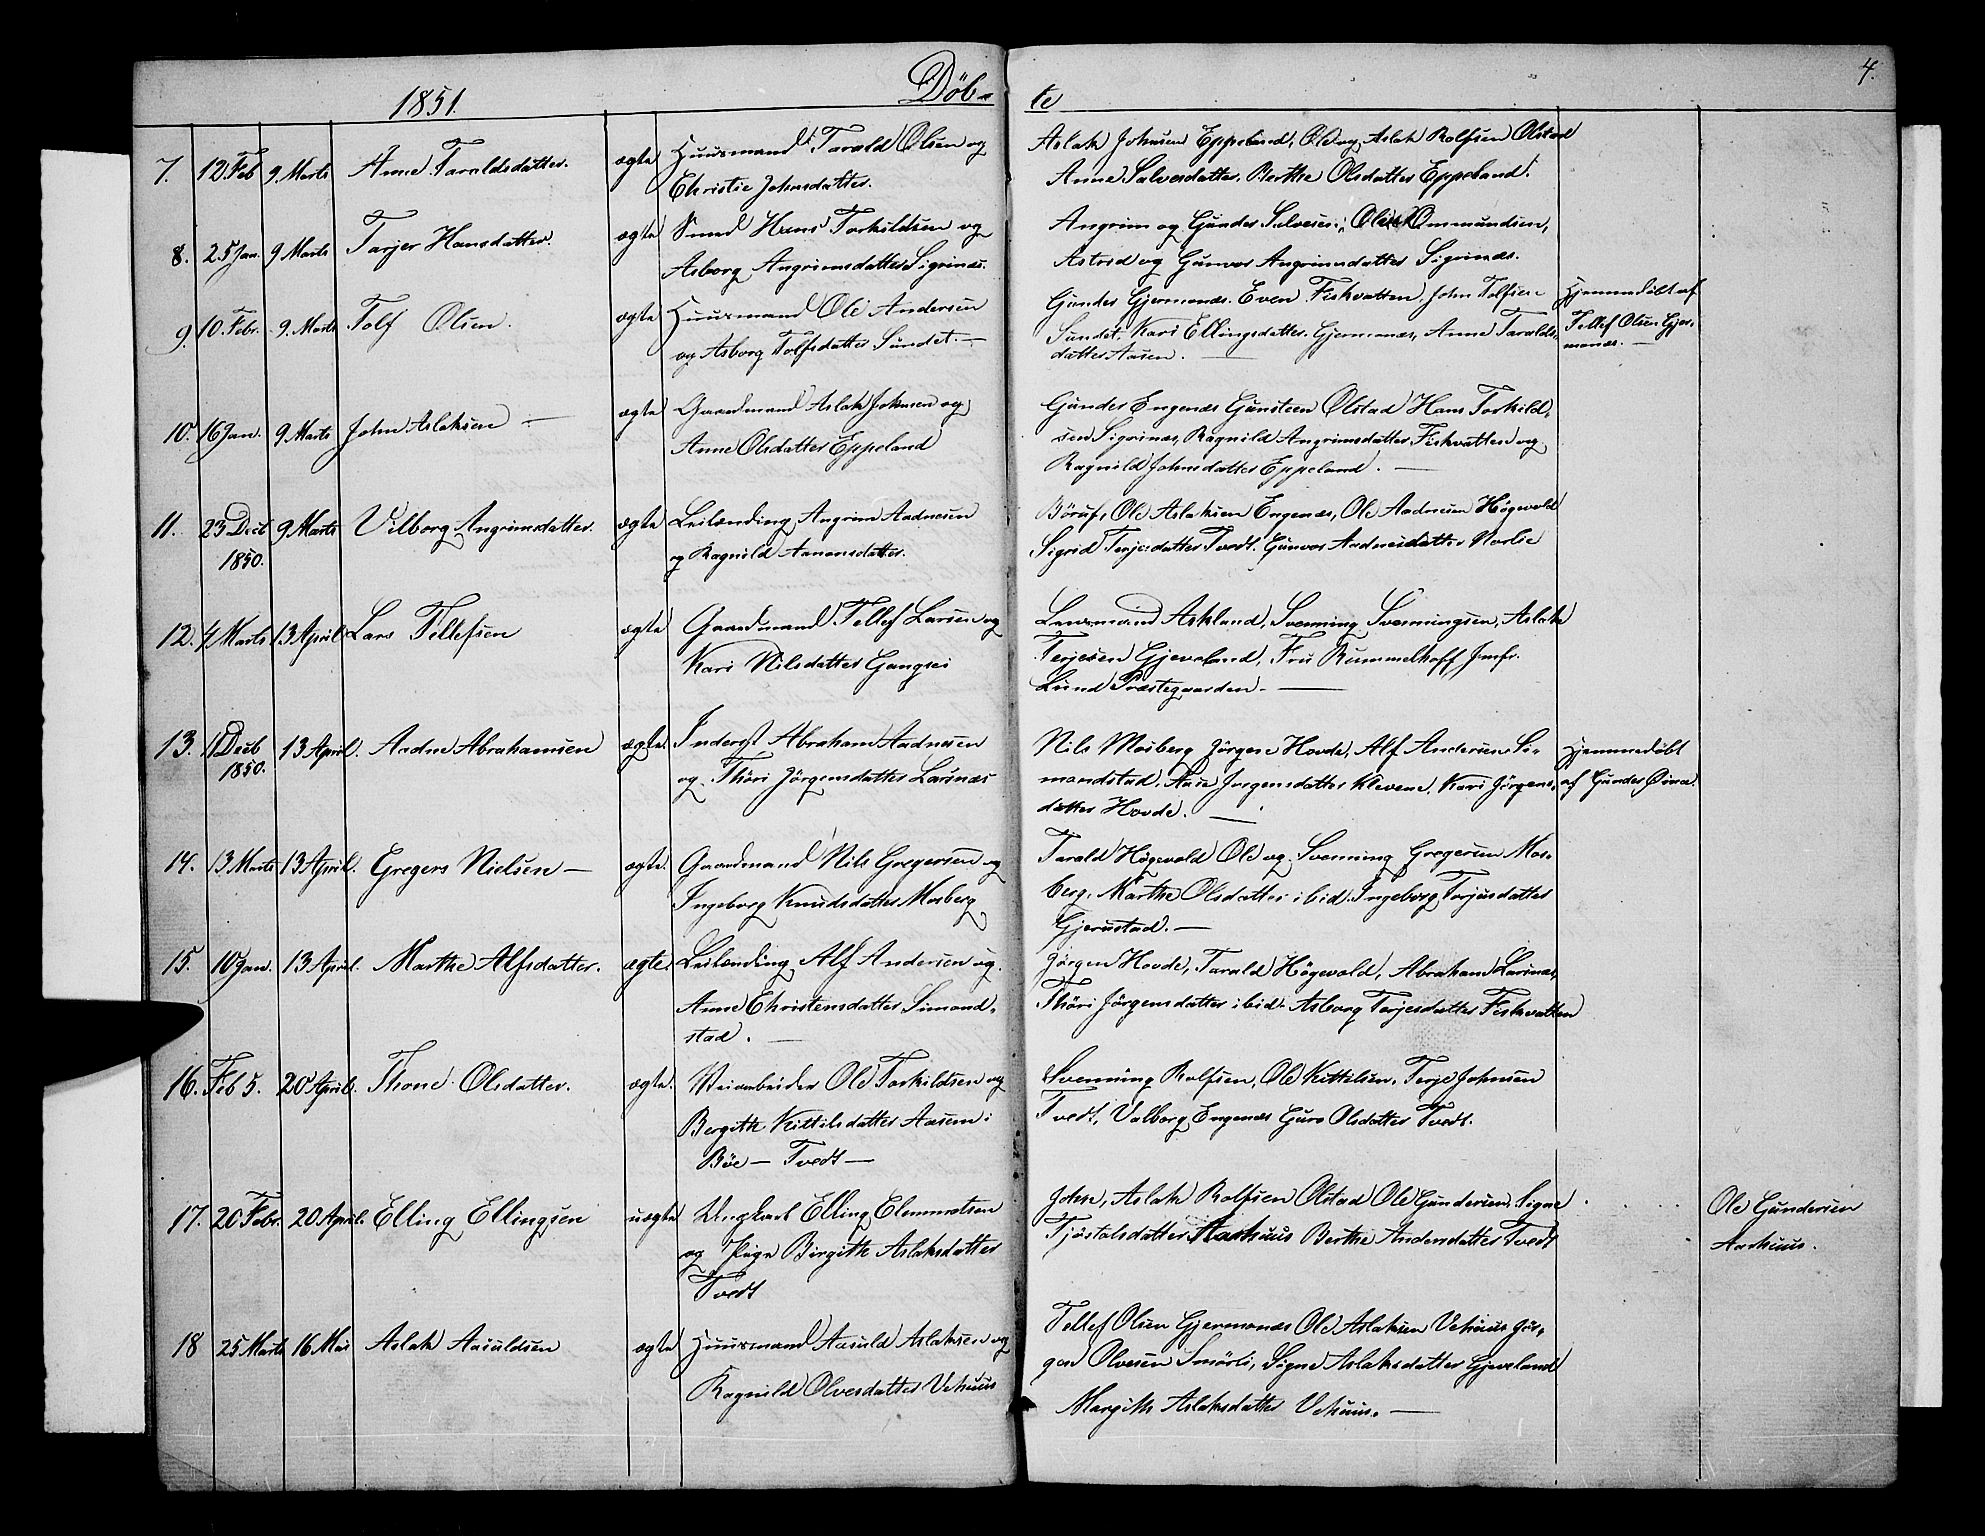 1851.
Döb-
te
4.
7. 12. Feb 9. Marts Anne Taraldsdatter. ægte Huusmand Tarald Olsen og
Christie Johnsdatter.
Aslak Johnsen Eppeland, Ole og Aslak Rolfsen Olstad
Anne Salvesdatter, Berthe Olsdatter Eppeland.
8. 25 Jan. 9 Marts Tarjer Hansdatter. ægte Smed Hans Torkildsen og
Asborg Angrimsdatter Sigrinæs.
Angrim og Gunder Salvesen, Ole Ommundsen,
Astrid og Gunvor Angrimsdatter Sigrinæs.
9. 10. Febr. 9. Marts Tolf Olsen. ægte Huusmand Ole Andersen
og Asborg Tolfsdatter Sundet. —
Gunder Gjermonæs. Even Fiskvatten, John Tolfsen
Sundet, Kari Ellingsdatter Gjermonæs, Anne Taralds-
datter Aasen. —
Hjemmedöbt af
Tellef Olsen Gjer-
monæs. —
10. 16 Jan. 9 Marts John Aslaksen — ægte Gaardmand Aslak Johnsen og
Anne Olsdatter Eppeland
Gunder Engenæs Gunsteen Olstad Hans Torkild-
sen Sigrinæs, Ragnild Angrimsdatter Fiskvatten og
Ragnild Johnsdatter Eppeland. —
11. 23 Dect 9 Marts Vilborg Angrimsdatter. ægte Leilænding Angrim Aadnesen
1850.
og Ragnild Aanonsdatter.
Börufs, Ole Aslaksen Engenæs, Ole Aadnesen Högevold
Sigrid Terjesdatter Tvedt. Gunvor Aadnesdatter Norlie
12. 4 Marts 13 April Lars Tellefsen ægte Gaardmand Tellef Larsen og
Kari Nilsdatter Gangsei
Lensmand Askland, Svenning Svenningsen, Aslak
Terjesen Gjeveland, Fru Rummelhoff, Jmfr.
Lund Præstegaarden. —
13. 11 Decb 13 April. Aadne Abrahamsen ægte. Inderst Abraham Aadnesen
1850.
og Thöri Jörgensdatter Larinæs
Nils Mosberg Jörgen Hovde, Alf Andersen Si-
mondstad, Aase Jörgensdatter Klevene, Kari Jörgens-
datter Hovde. —
Hjemmedöbt
af Gunder
14. 13 Marts 13 April. Gregers Nielsen — ægte. Gaardmand Nils Gregersen og
Ingeborg Knudsdatter Mosberg
Tarald Högevold Ole og Svenning Gregersen Mos-
berg. Marthe Olsdatter ibid. Ingeborg Torjusdatter
Gjerustad. —
15. 10 Jan. 13 April. Marthe Alfsdatter. ægte. Leilænding Alf Andersen og
Anne Christensdatter Simond-
stad. —
Jörgen Hovde, Tarald Högevold, Abraham Larinæs,
Thöri Jörgensdatter ibid. Asborg Terjesdatter Fiskvatten
16. Feb 5. 20 April. Thone Olsdatter. ægte. Veiarbeider Ole Torkildsen og
Bergith Kittilsdatter Aasen i
Böe — Tvedt —
Svenning Rolfsen, Ole Kittilsen, Terje Johnsen
Tvedt, Valborg Engenæs Guro Olsdatter Tvedt.
17. 20 Febr. 20 April. Elling Ellingsen uægte Ungkarl Elling Clemmetsen
og Pige Birgith Aslaksdatter
Tvedt
John, Aslak Rolfsen Olstad Ole Gundersen, Signe
Tjöstolsdatter Aashuus Berthe Andersdatter Tvedt
Ole Gundersen
Aashuus.
18 25 Marts 16 Mai Aslak Aasuldsen ægte Huusmand Aasuld Aslaksen og
Ragnild Olvesdatter Vehuus
Tellef Olsen Gjermonæs Ole Aslaksen Vehuus Jör-
gen Olvesen Smörli, Signe Aslaksdatter Gjeveland
Margith Aslaksdatter Vehuus. —